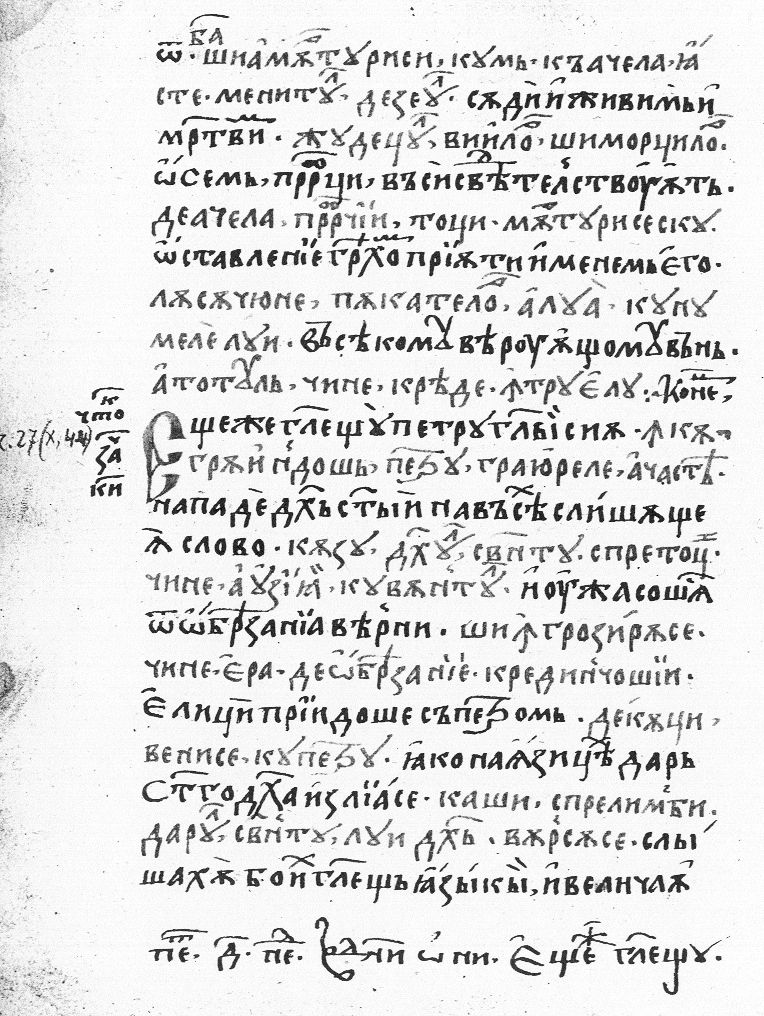 ѿ · ба шиамѫтурисн, кумь · къачела · ꙗ҆
сте · менитꙋл, дезеꙋл · сѫдїи҆ живимьи҆
мр҃твїи · жꙋдецꙋл, вїилѡⷬ, шиморцилѡⷬ.
ѡ҆ семь, прⷪ҇рци, въси свѣтелствоуѫть.
деачела, прⷪ҇рчїи, тоци · мѫтурисеску.
ѡ҆ставленїе грѣхоⷨ прїѧти и҆менемь е҆го ·
лѫсѫчюне, пѫкателѡⷬ, а҆луа̀ · куну
меле луи · въсѣкомꙋ вѣроуѫщомꙋ вънь.
а҆тотꙋль, чине, крѣде · ꙟтру е҆лу :· Конеⷰ,
к
что
за҃ч
ки
Е҆щеже гл҃ещꙋ петру гл҃ы сиѫ · ꙟ кѫ
грѫи҆ ндошь, петру, граюреле, ачастѣ ·
нападе дх҃ь ст҃ыи навъсѣⷯ слишѫще
ѫ слово · кѫзу, дх҃ꙋл, свⷩ҇ту · спре тоцⷩ ·
чине · аꙋзїꙗ · кувѫнтꙋл · и҆ оужасошѫ
ѿ ѡ҆брѣзанїа вѣрни · ши ꙟгрозирѫсе ·
чине · е҆ра · де ѡ҆брѣзанїе · крединчошїи ·
Е҆лици прїидоше съпетромь · декѫци,
венисе · ку петру · ꙗко наѧзицѣⷯ дарь
Ст҃го дх҃а и҆злїасе · каши, спре лимби.
дарꙋл, свⷩ҇ту, луи дх҃ь · вѫрсѫсе · слы
шахѫ бо иⷯ гл҃ещь ꙗзыкы, и҆ величаѫ
пеⷮ · д҃ · пеⷧ · ѡ҆ни · Е҆щеⷤ гл҃ещу ·